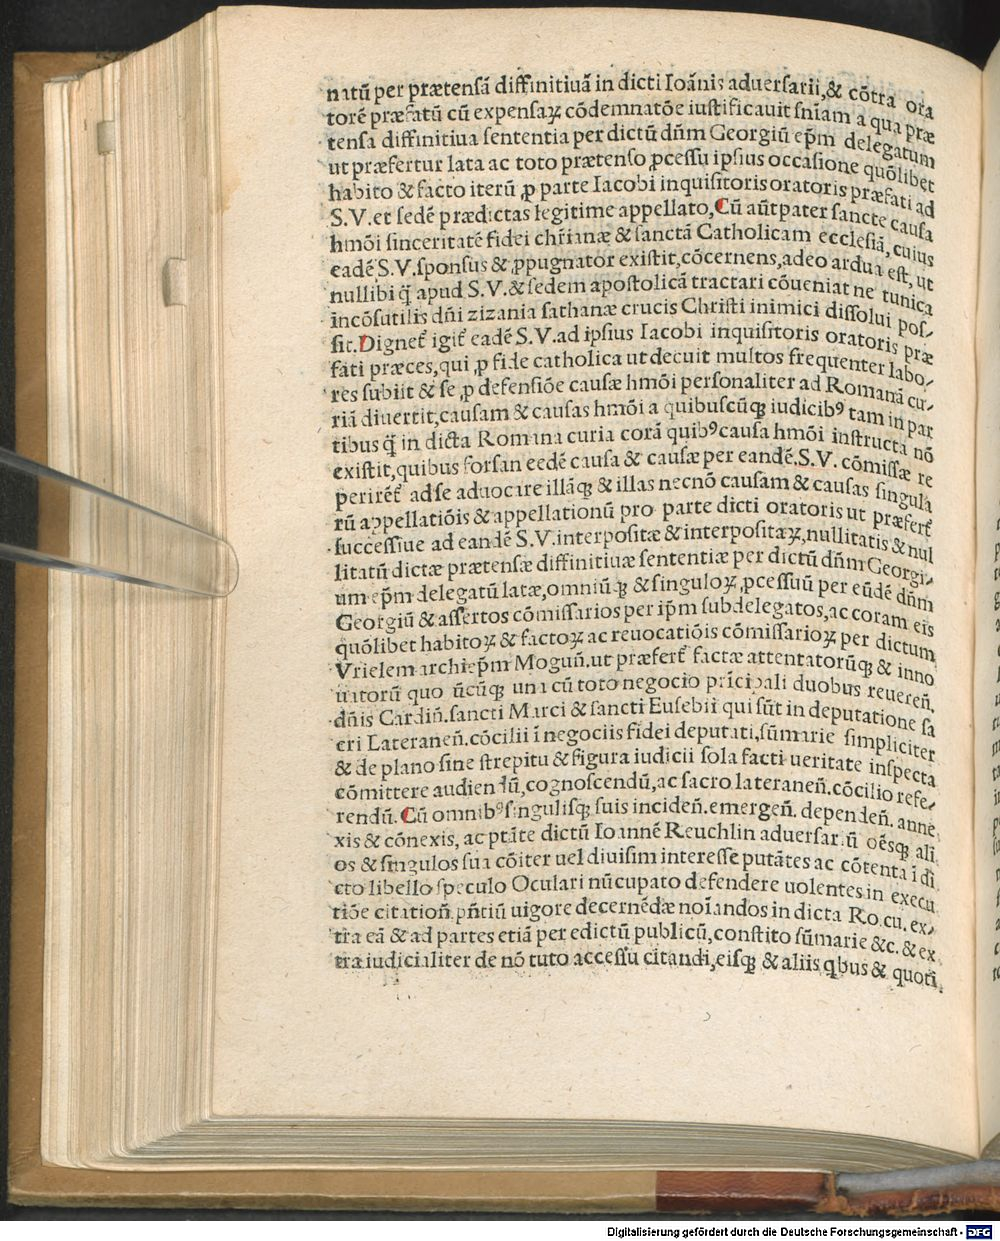 nitū per prætensā diffinitiuā in dicti Ioānis aduersarii,& cōtra ora
torē præfatū cū expensaꝝ cōdemnatōe iustificauit sn̄iam a qua præ
tensa diffinitiua sententia per dictū dn̄m Georgiū ep̄m delegatum
ut præfertur lata ac toto prætenso ꝓcessu ipsius occasione quōlibet
habito & facto iterū ꝓ parte Iacobi inquisitoris oratoris præfati ad
S.V.et sedē prædictas legitime appellato,Cū aūt pater sancte causa
hmōi sinceritatē fidei chr̄ianæ & sanctā Catholicam ecclesiā, cuius
eadē S.V.sponsus & ꝓpugnator existit,cōcernens,adeo ardua est, ut
nullibi q̄ apud S.V.& sedem apostolicā tractari cōueniat ne tunica
incōsutilis dn̄i zizania sathanæ crucis Christi inimici dissolui pos-
sit.Dignet̄ igit̄ eadē S.V.ad ipsius Iacobi inquisitoris oratoris præ
fati præces,qui ꝓ fide catholica ut decuit multos frequenter labo-
res subiit & se ꝓ defensiōe causæ hmōi personaliter ad Romanā cu-
riā diuertit,causam & causas hmōi a quibuscūqꝫ iudicibꝰ tam in par
tibus q̄ in dicta Romana curia corā quibꝰ causa hmōi instructa nō
existit,quibus forsan eedē causa & causæ per eandē.S.V. cōmissæ re
perirēt̄ ad se aduocare illāqꝫ & illas necnō causam & causas singula
rū appellatiōis & appellationū pro parte dicti oratoris ut præfert̄
successiue ad eandē S.V.interpositæ & interpositaꝝ,nullitatis & nul
litatū dictæ prætensæ diffinitiuæ sententiæ per dictū dn̄m Georgi-
um ep̄m delegatū latæ,omniūqꝫ & singuloꝝ ꝓcessuū per eūdē dn̄m
Georgiū & assertos cōmissarios per ip̄m subdelegatos,ac coram eis
quōlibet habitoꝝ & factoꝝ ac reuocatiōis cōmissarioꝝ per dictum
Vrielem archiep̄m Mogun̄.ut præfert̄ factæ attentatorūqꝫ & inno
uatorū quo ūcūqꝫ una cū toto negocio prīcipali duobus reueren̄.
dn̄is Cardin̄.sancti Marci & sancti Eusebii qui sūt in deputatione sa
cri Lateranen̄.cōcilii ī negociis fidei deputati,sūmarie simpliciter
& de plano sine strepitu & figura iudicii sola facti ueritate inspecta
cōmittere audiendū,cognoscendū,ac sacro lateranen̄.cōcilio refe-
rendū.Cū omnibꝰ singulisqꝫ suis inciden̄.emergen̄. dependen̄. anne
xis & cōnexis, ac ptāte dictū Ioannē Reuchlin aduersariū oēsqꝫ ali
os & singulos sua cōiter uel diuisim interesse putātes ac cōtenta ī di
cto libello speculo Oculari nūcupato defendere uolentes in execu
tiōe citation̄.pn̄tiū uigore decernēdæ noīandos in dicta Ro.cu. ex-
tra eā & ad partes etiā per edictū publicū,constito sūmarie &c. & ex
tra iudicialiter de nō tuto accessu citandi,eisqꝫ & aliis qbus & quoti
Digitalisierung gefördert durch die Deutsche Forschungsgemeinschaft - DFG